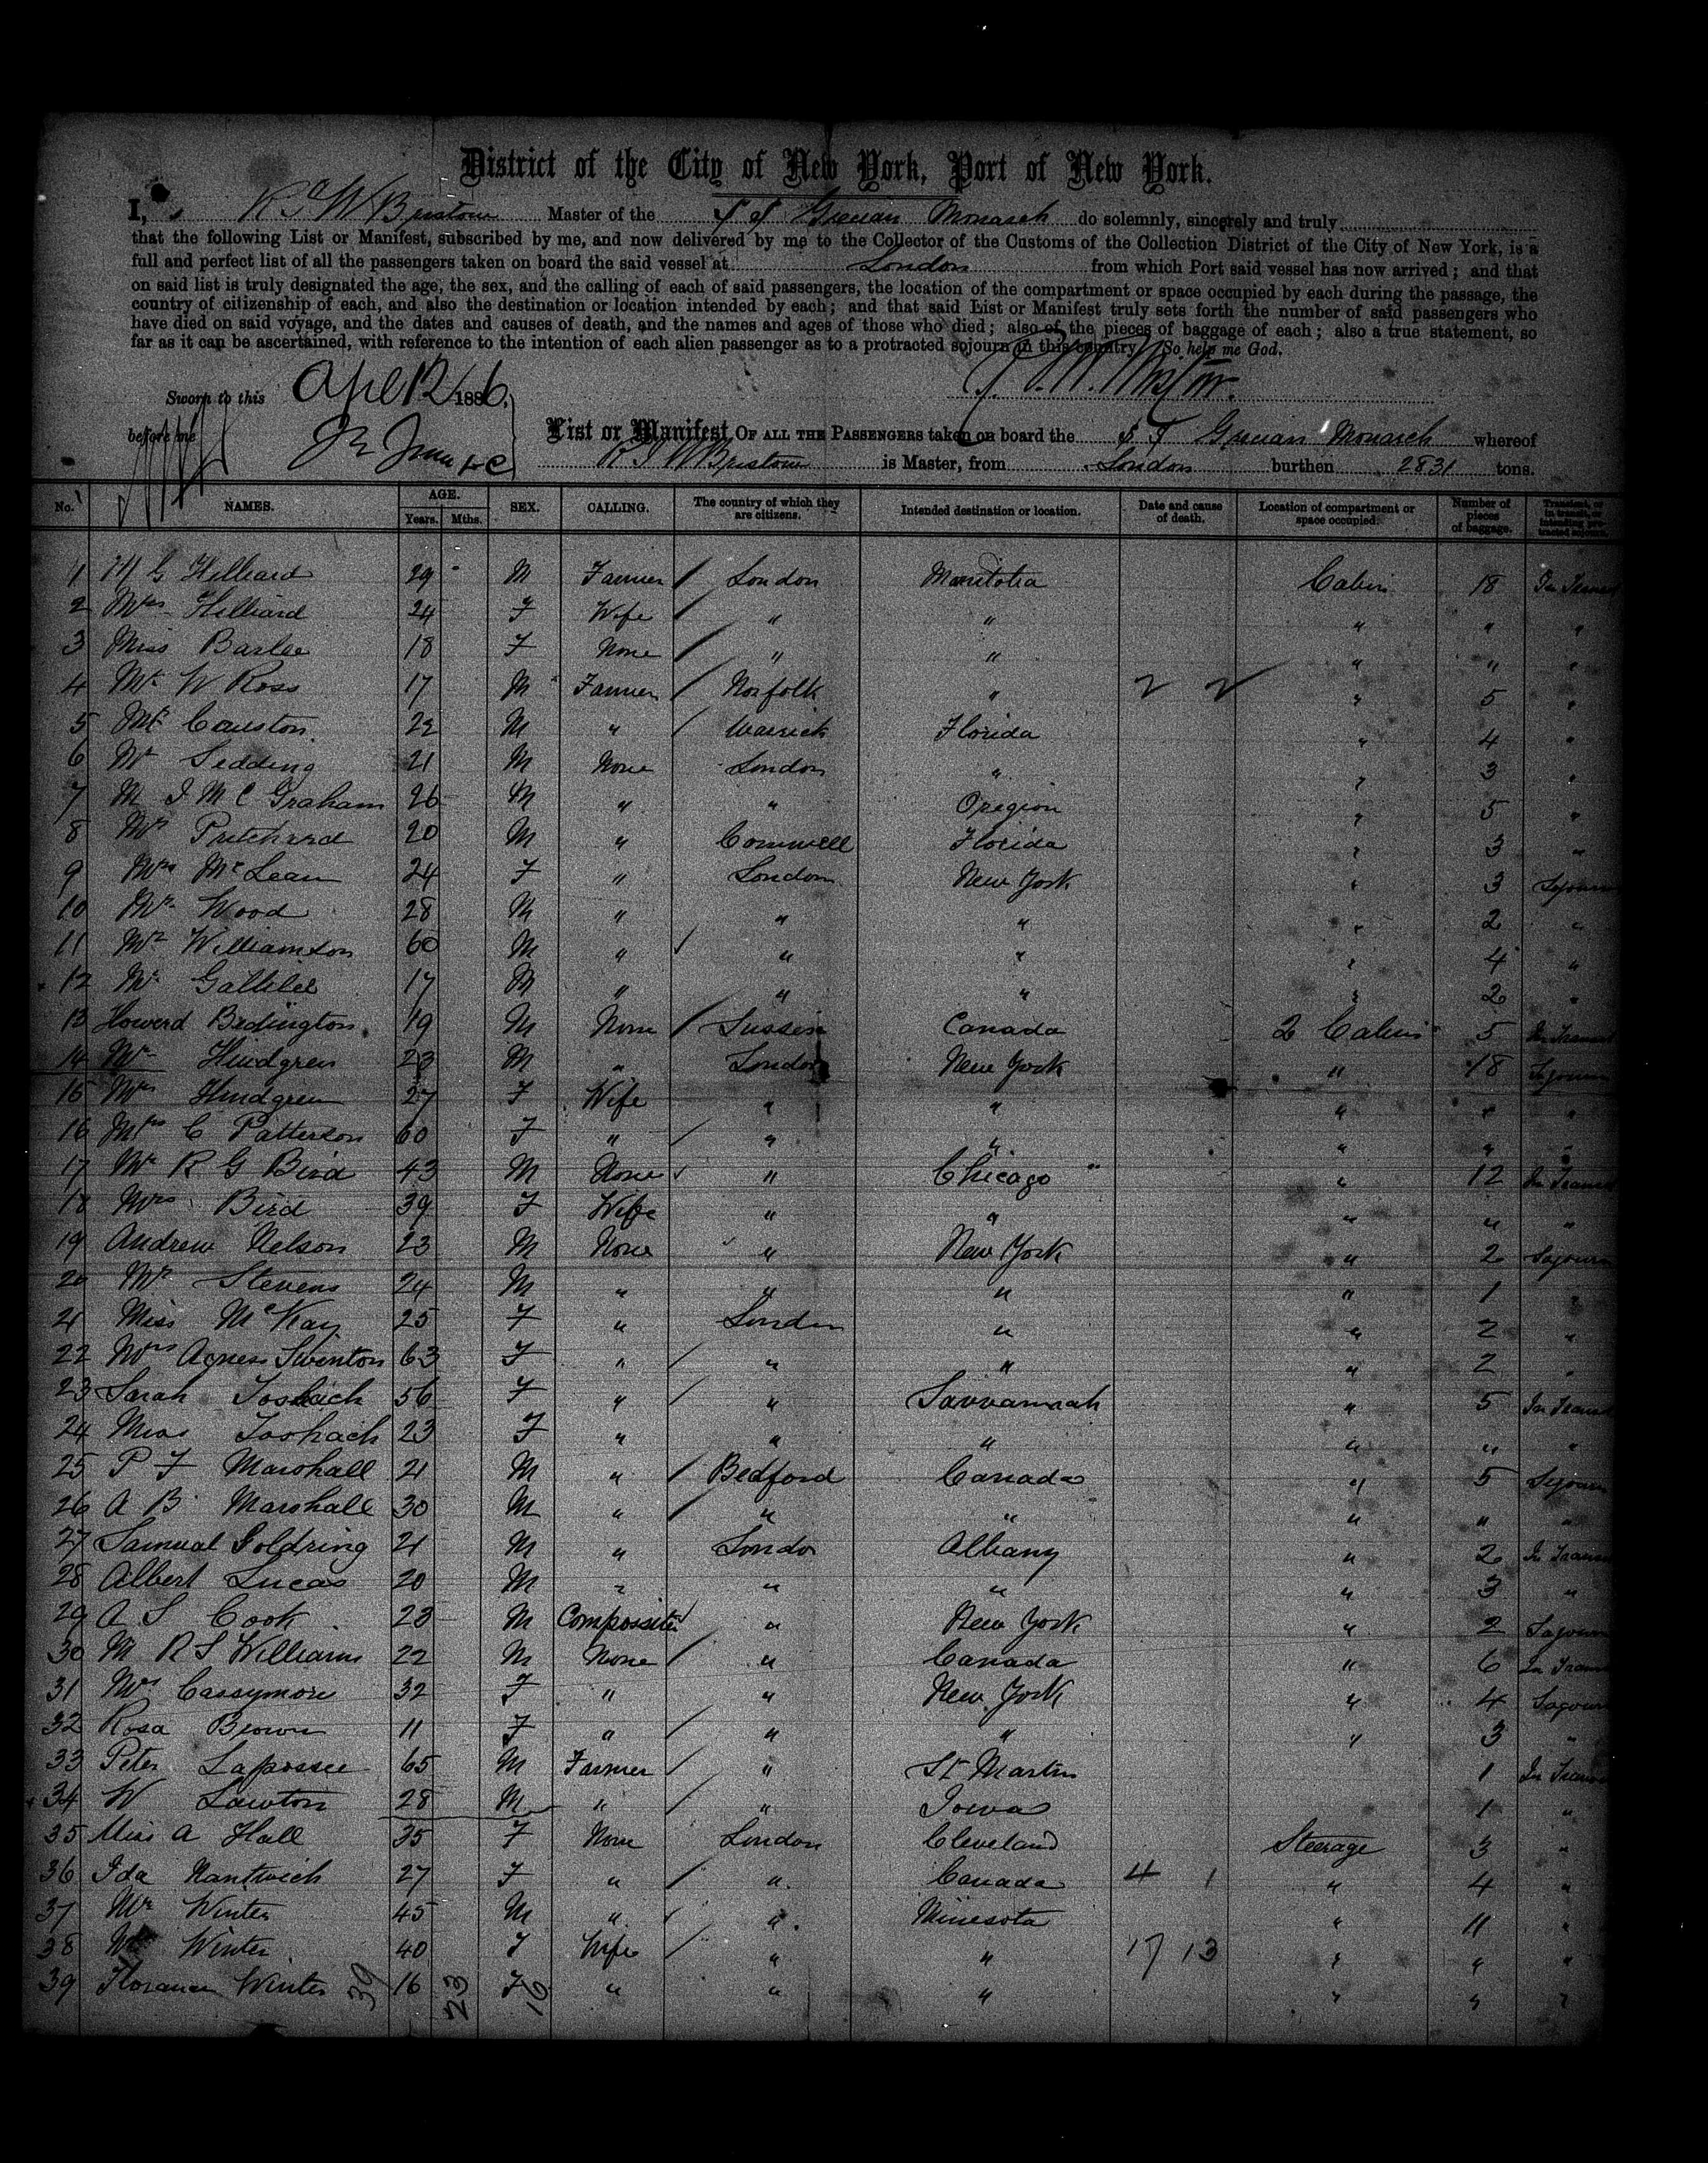 District of the City of New York, Port of New York.
I, R J W Bristow Master of the S S Grecian Monarch do solemnly, sincerely and truly
that the following List or Manifest, subscribed by me, and now delivered by me to the Collector of the Customs of the Collection District of the City of New York, is a
full and perfect list of all the passengers taken on board the said vessel at London from which Port said vessel has now arrived; and that
on said list is truly designated the age, the sex, and the calling of each of said passengers, the location of the compartment or space occupied by each during the passage, the
country of citizenship of each, and also the destination or location intended by each; and that said List or Manifest truly sets forth the number of said passengers who
have died on said voyage, and the dates and causes of death, and the names and ages of those who died; also of the pieces of baggage of each; also a true statement, so
far as it can be ascertained, with reference to the intention of each alien passenger as to a protracted sojourn in this country. So help me God.
Sworn to this Apl 12 1886.
before me
List or Manifest OF ALL THE PASSENGERS taken on board the S S Grecian Monarch whereof
R J W Bristow is Master, from London burthen 2831 tons.
No. NAMES. AGE. Years. Mths. SEX. CALLING. The country of which they are citizens. Intended destination or location. Date and cause of death. Location of compartment or space occupied. Number of pieces of baggage. Transient, or in transit, or intending protracted sojourn.
1 H G Hilliard 29 M Farmer London Manitoba Cabin 18 In Transit
2 Mrs Hilliard 24 F Wife " " " " "
3 Miss Barlee 18 F None " " " " "
4 Mr W Ross 17 M Farmer Norfolk " 2 2 " 5 "
5 Mr Causton 22 M " Warrick Florida " 4 "
6 Mr Sedding 21 M None London " " 3 "
7 M J M C Graham 26 M " " Oregion " 5 "
8 Mr Pritchard 20 M " Cornwell Florida " 3 "
9 Mrs McLean 24 F " London New York " 3 Sojourn
10 Mr Wood 28 M " " " " 2 "
11 Mr Williamson 60 M " " " " 4 "
12 Mr Gallilee 17 M " " " " 2 "
13 Howerd Bedington 19 M None Sussex Canada 2 Cabin 5 In Transit
14 Mr Hindgren 23 M " London New York " 18 Sojourn
15 Mrs Hindgren 27 F Wife " " " " "
16 Mrs C Patterson 60 F " " " " " "
17 Mr R G Bird 43 M None " Chicago " 12 In Transit
18 Mrs Bird 39 F Wife " " " " "
19 Andrew Nelson 23 M None " New York " 2 Sojourn
20 Mr Stevens 24 M " " " " 1 "
21 Miss McKay 25 F " London " " 2 "
22 Mrs Agness Swinton 63 F " " " " 2 "
23 Sarah Toshach 56 F " " Savvannah " 5 In Transit
24 Miss Toshach 23 F " " " " " "
25 P F Marshall 21 M " Bedford Canada " 5 Sojourn
26 A B Marshall 30 M " " " " " "
27 Samual Goldring 21 M " Londo Albany " 2 In Transit
28 Albert Lucas 20 M " " " " 3 "
29 A S Cook 23 M Compossiter " New York " 2 Sojourn
30 M R S Williams 22 M None " Canada " 6 In Transit
31 Mrs Cassymore 32 F " " New York " 4 Sojourn
32 Rosa Brown 11 F " " " " 3 "
33 Peter Laposse 65 M Farmer " St Martin 1 In Transit
34 W Lawton 28 M " " Iowa 1 "
35 Miss A Hall 35 F None London Cleveland Steerage 3 "
36 Ida Nantwich 27 F " " Canada 4 1 " 4 "
37 Mr Winter 45 M " " Minesota " 11 "
38 Winter 40 F Wife " " 17 13 " " "
39 Florance Winter 39 16 23 F 16 " " " " " "